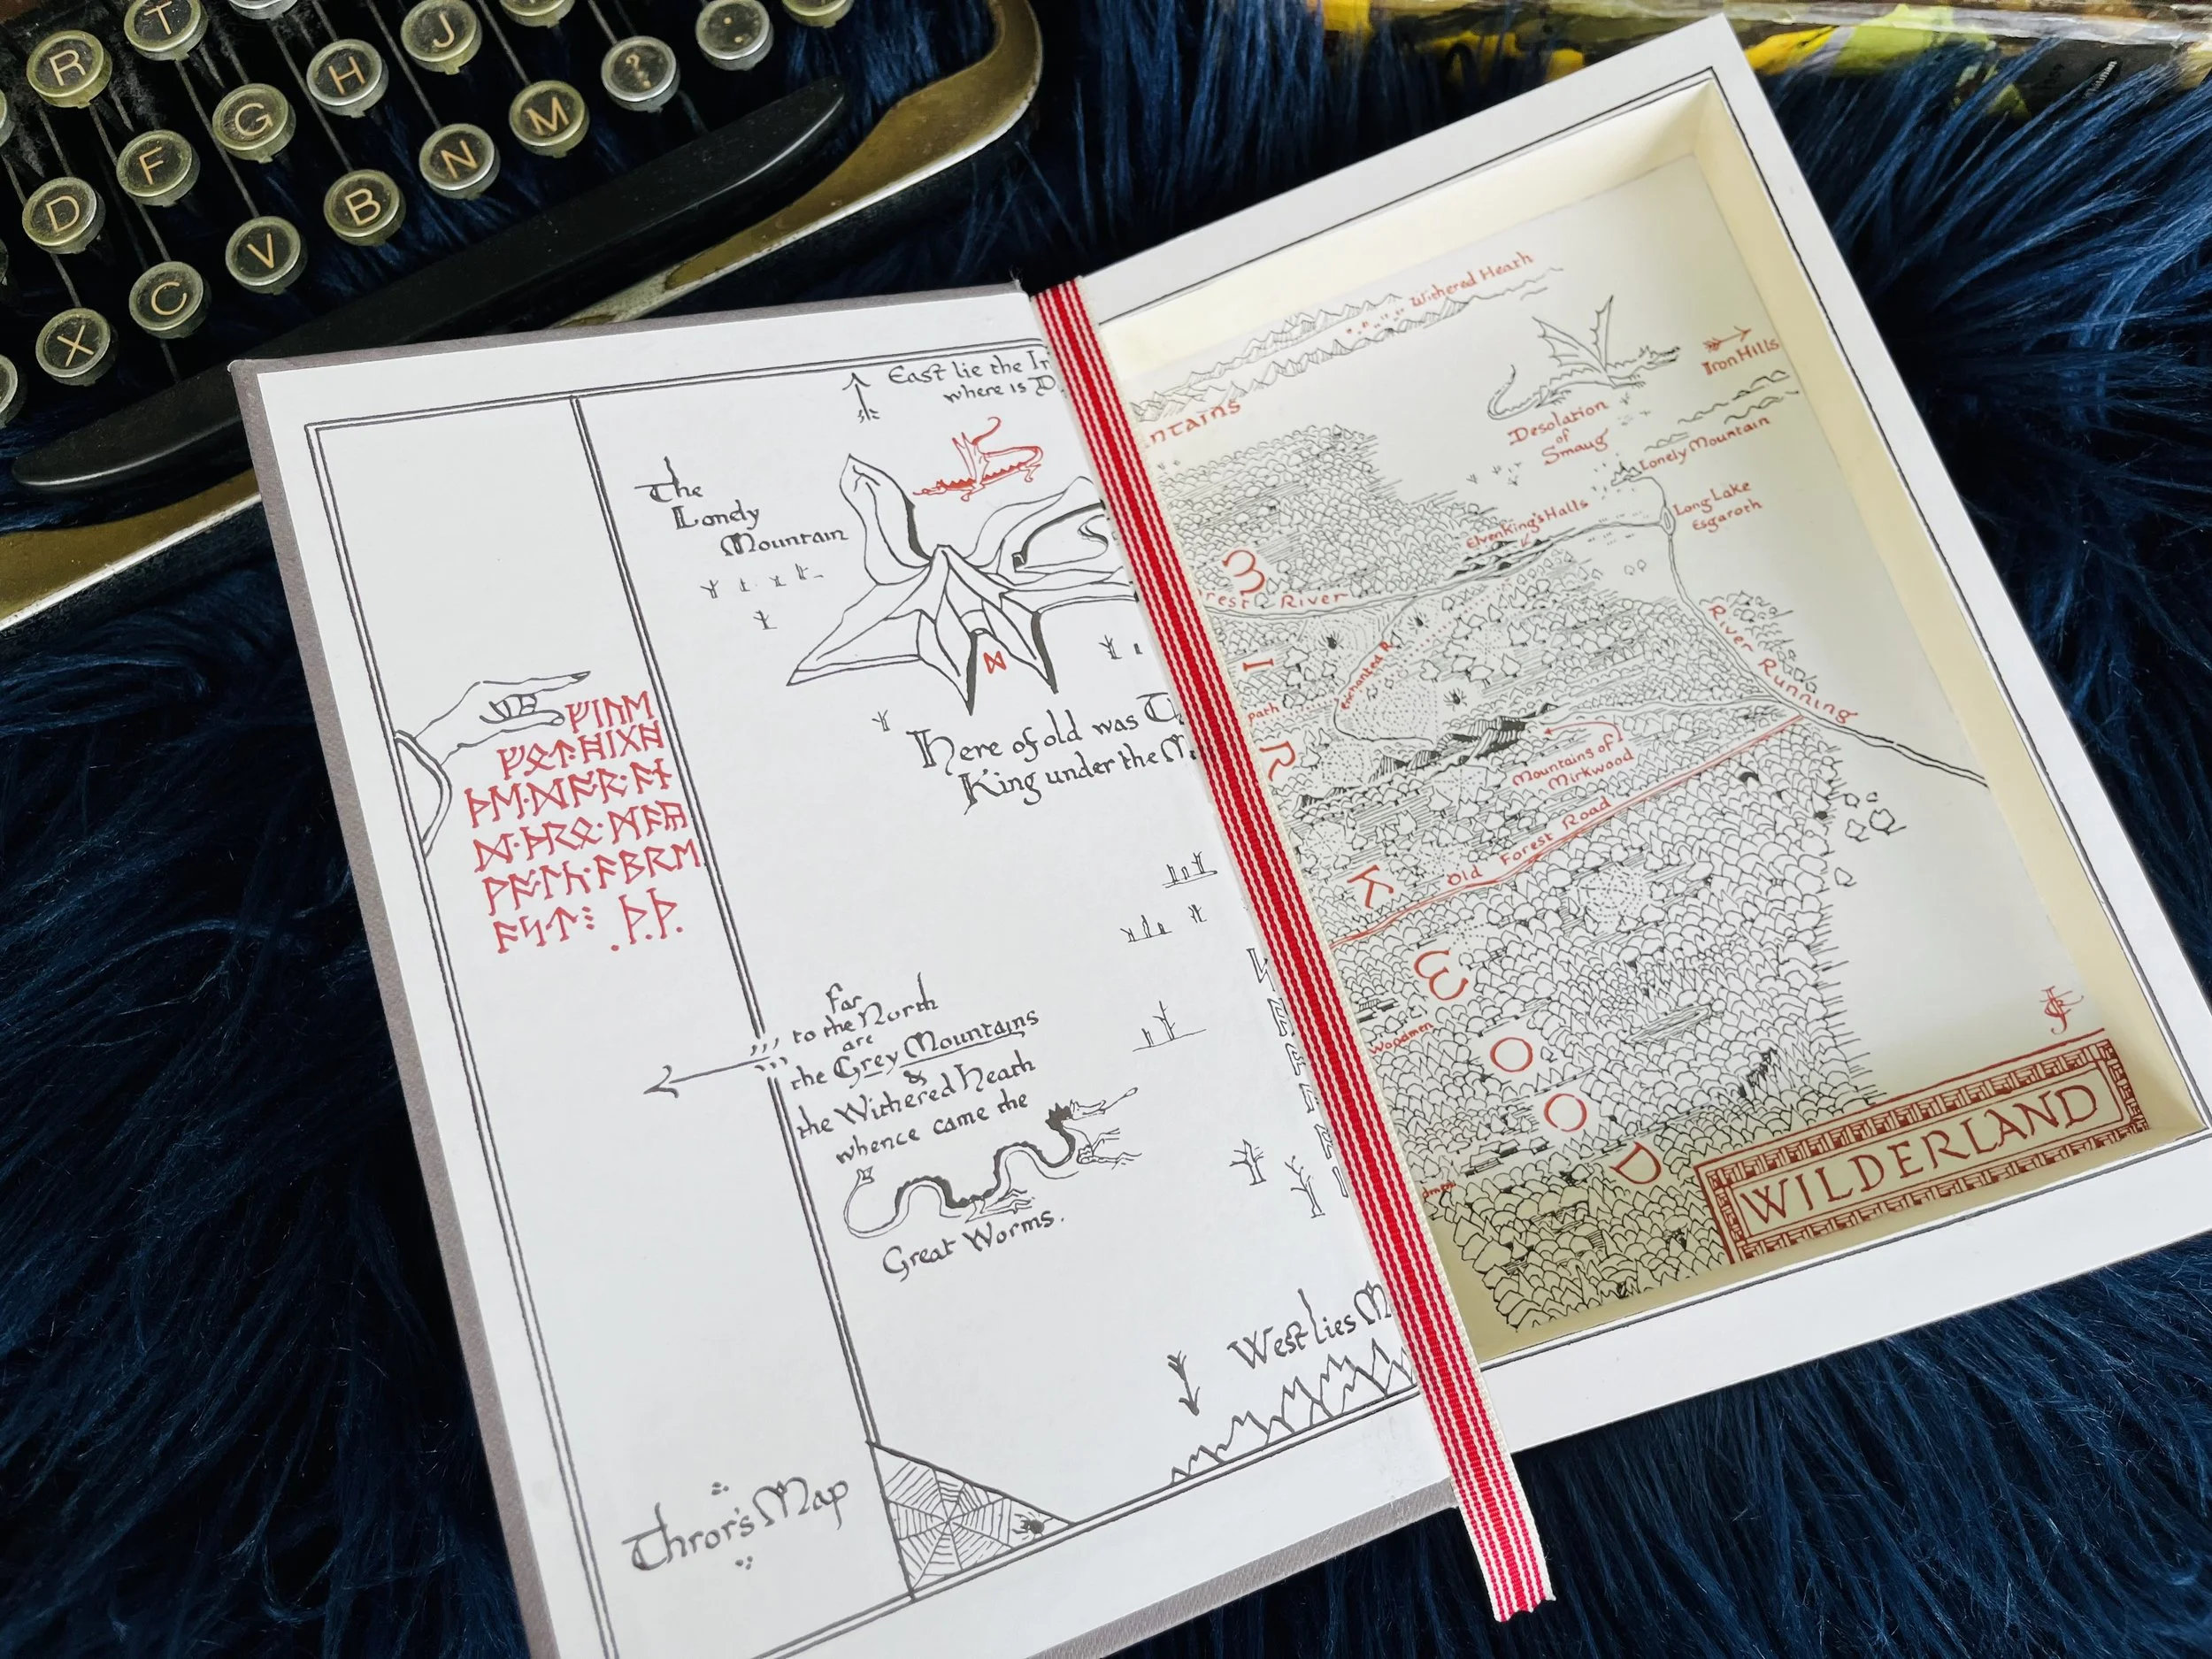 T J
R H ? .
G M
F N
D B
V
C
X
East lie the
where is D
The
Lonely
Mountain
ᛞ
Here of old was
King under the
ᚠᛁᚢᛖ
ᚠᛟᛏ᛫ᚻᛁᚷᚻ
ᚦᛖ᛫ᛞᚩᚱ᛫ᚪᚾ
ᛞ᛫ᚦᚱᛟ᛫ᛗᚪᚣ
ᚹᚪᛚᚳ᛫ᚪᛒᚱᛖ
ᚪᛋᛏ⁝ .ᚦ.ᚦ.
Far
to the North
are
the Grey Mountains
&
the Withered Heath
whence came the
Great Worms.
West lies M
Thror's Map
Withered Heath
ntains
Iron Hills
Desolation
of
Smaug
Lonely Mountain
Long Lake
Esgaroth
Elvenking's Halls
rest River
Enchanted R.
path
River Running
Mountains of
Mirkwood
Old Forest Road
MIRKWOOD
Woodmen
WILDERLAND